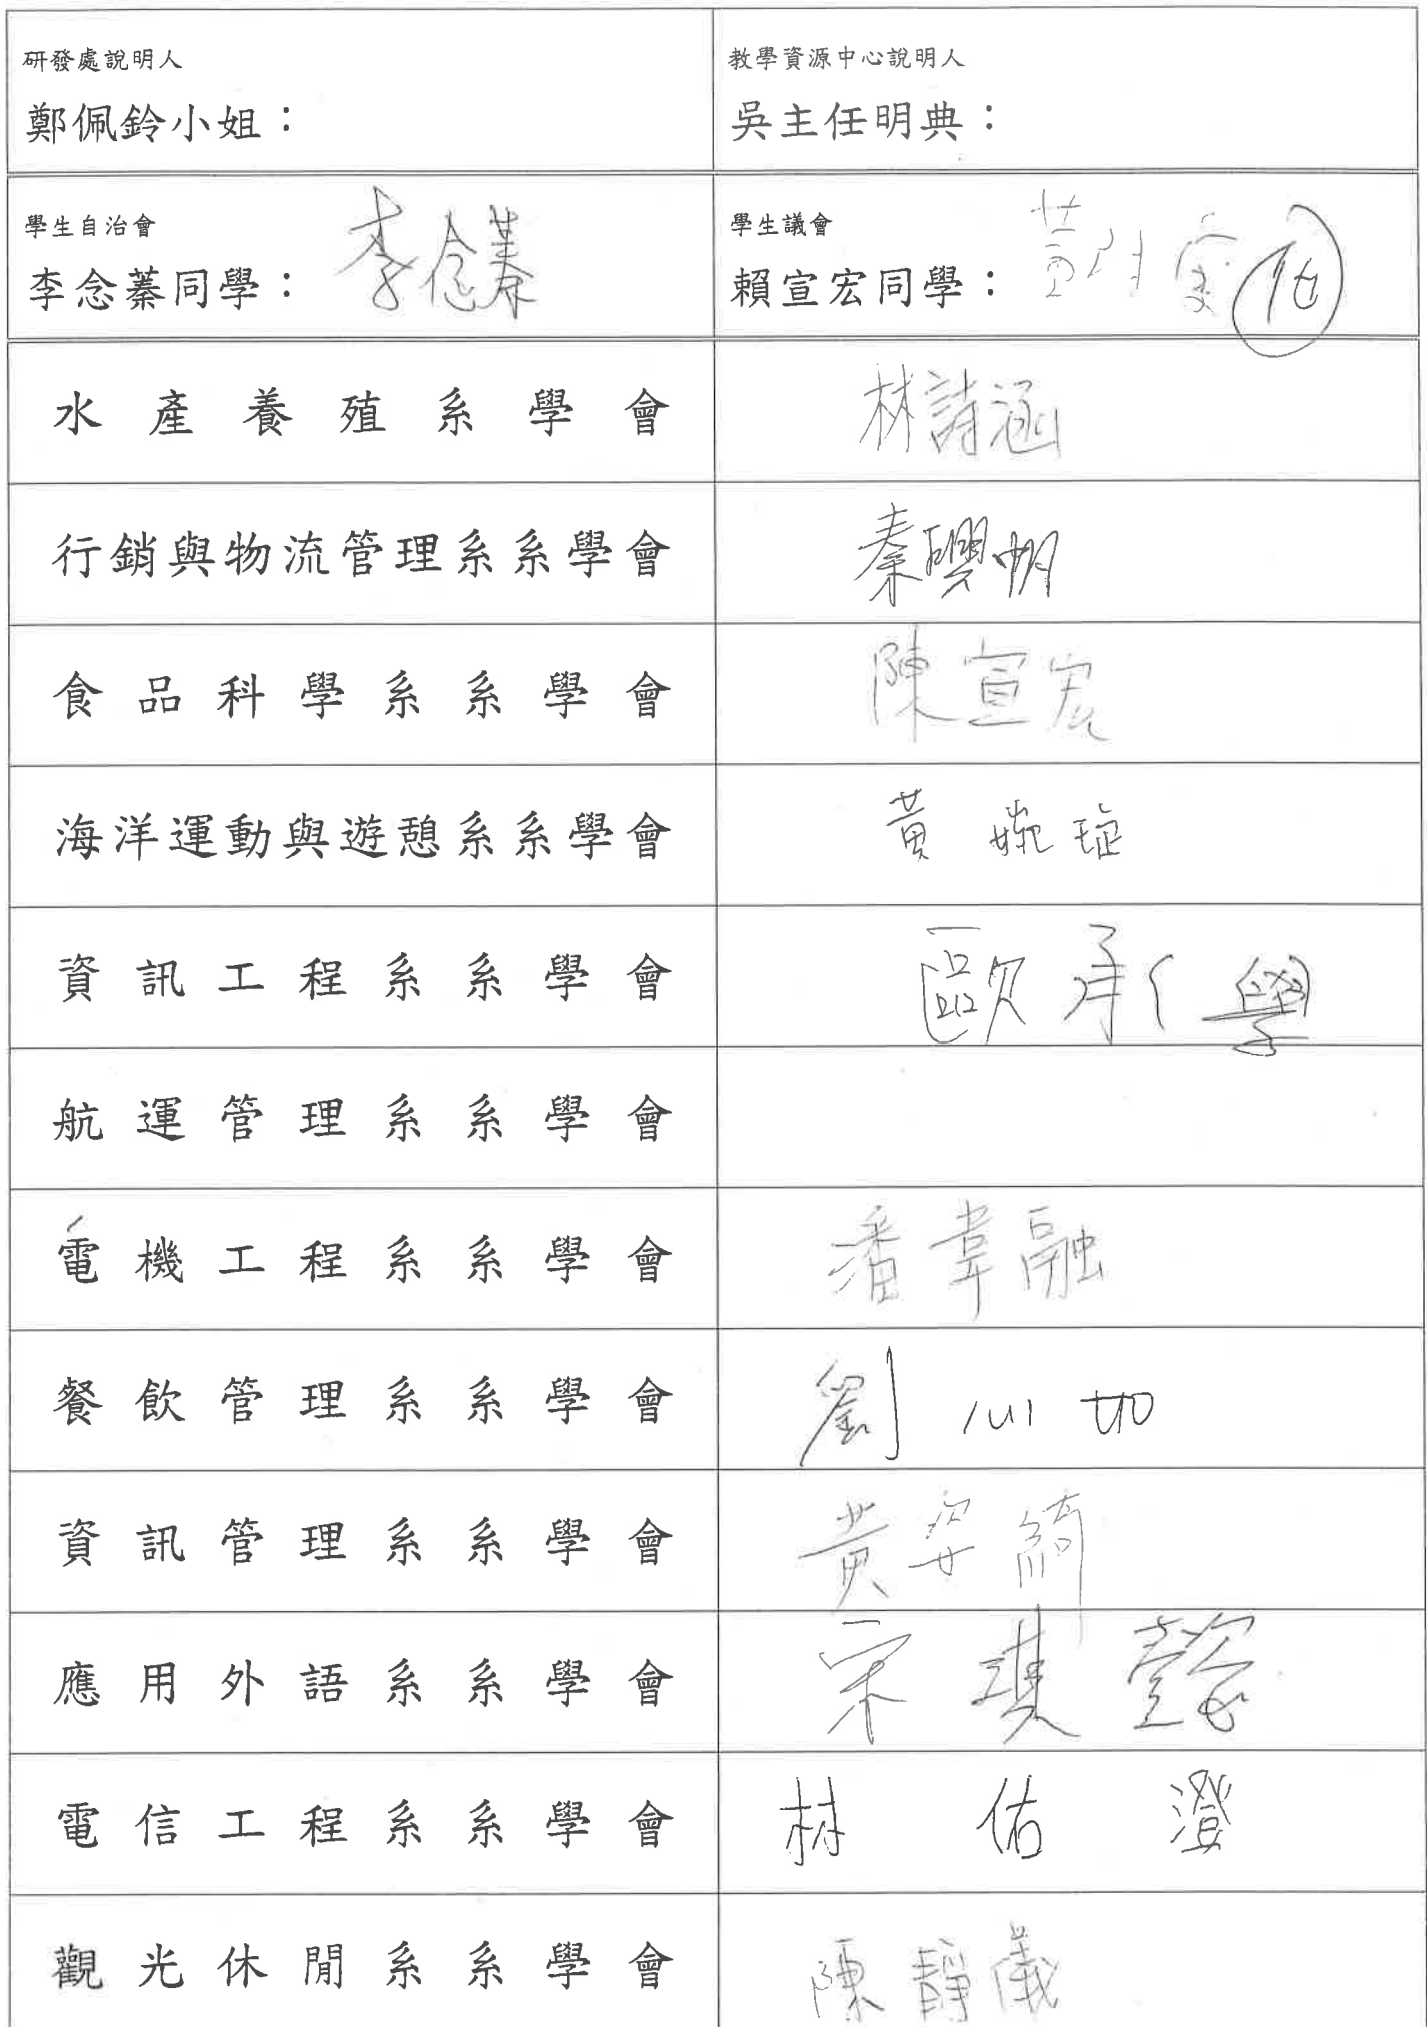 研發處說明人
鄭佩鈴小姐：
教學資源中心說明人
吳主任明典：
學生自治會
李念蓁同學： 李念蓁
學生議會
賴宣宏同學： 黃 代
水產養殖系學會 林詩涵
行銷與物流管理系系學會 秦
食品科學系系學會 陳宣宏
海洋運動與遊憩系系學會 黃婉琁
資訊工程系系學會 歐承學
航運管理系系學會
電機工程系系學會 潘韋融
餐飲管理系系學會 劉
資訊管理系系學會 黃姿綺
應用外語系系學會 宋琪懿
電信工程系系學會 林佑澄
觀光休閒系系學會 陳靜儀